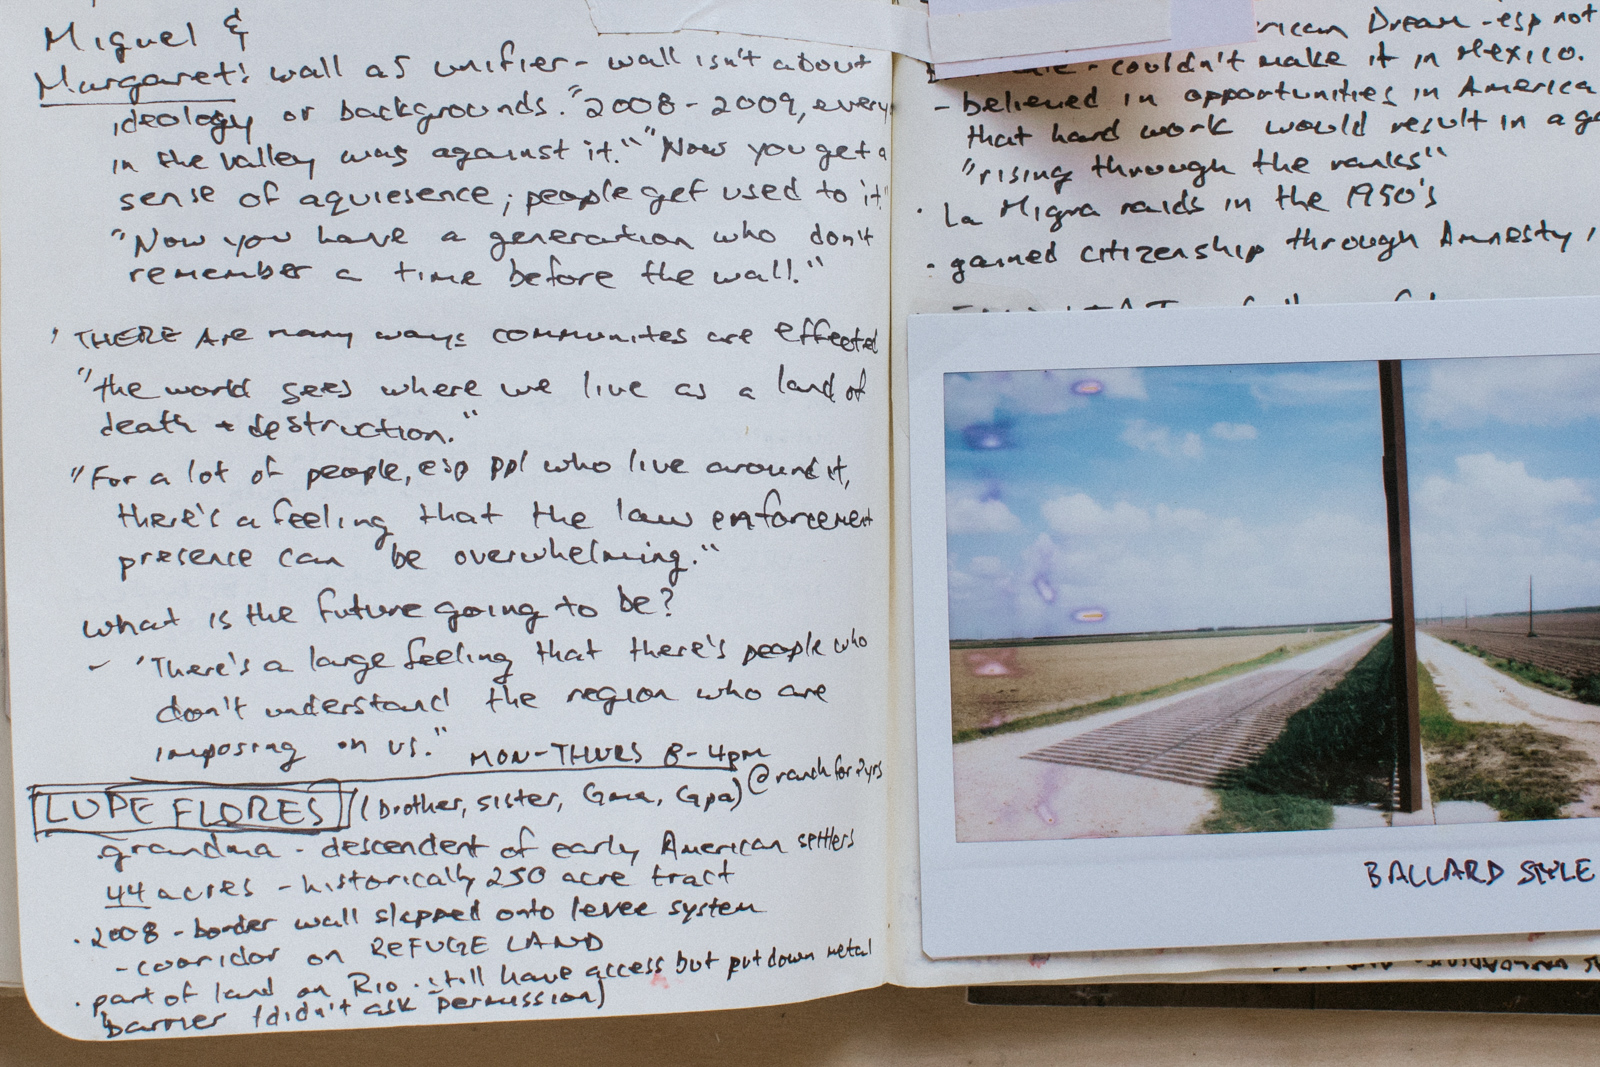 Miguel &
Margaret: wall as unifier - wall isn't about
ideology or backgrounds. "2008 - 2009, every
in the valley was against it." "Now you get a
sense of aquiesence; people get used to it"
"Now you have a generation who don't
remember a time before the wall."
THERE Are many ways communites are effected
"the world sees where we live as a land of
death + destruction."
"For a lot of people, esp ppl who live around it,
there's a feeling that the law enforcement
presence can be overwhelming."
what is the future going to be?
- 'There's a large feeling that there's people who
don't understand the region who are
imposing on us."
MON-THURS 8-4pm
LUPE FLORES (brother, sister, Gma, Gpa) @ ranch for 2yrs
grandma - descendent of early American settlers
44 acres - historically 250 acre tract
· 2008 - border wall slapped onto levee system
- corridor on REFUGE LAND
· part of land on Rio · still have access but put down metal
barrier (didn't ask permission)
rican Dream - esp not
- couldn't make it in Mexico.
- believed in opportunities in America
that hard work would result in a
"rising through the ranks"
· La Migra raids in the 1950's
· gained citizenship through Amnesty
BALLARD STYLE